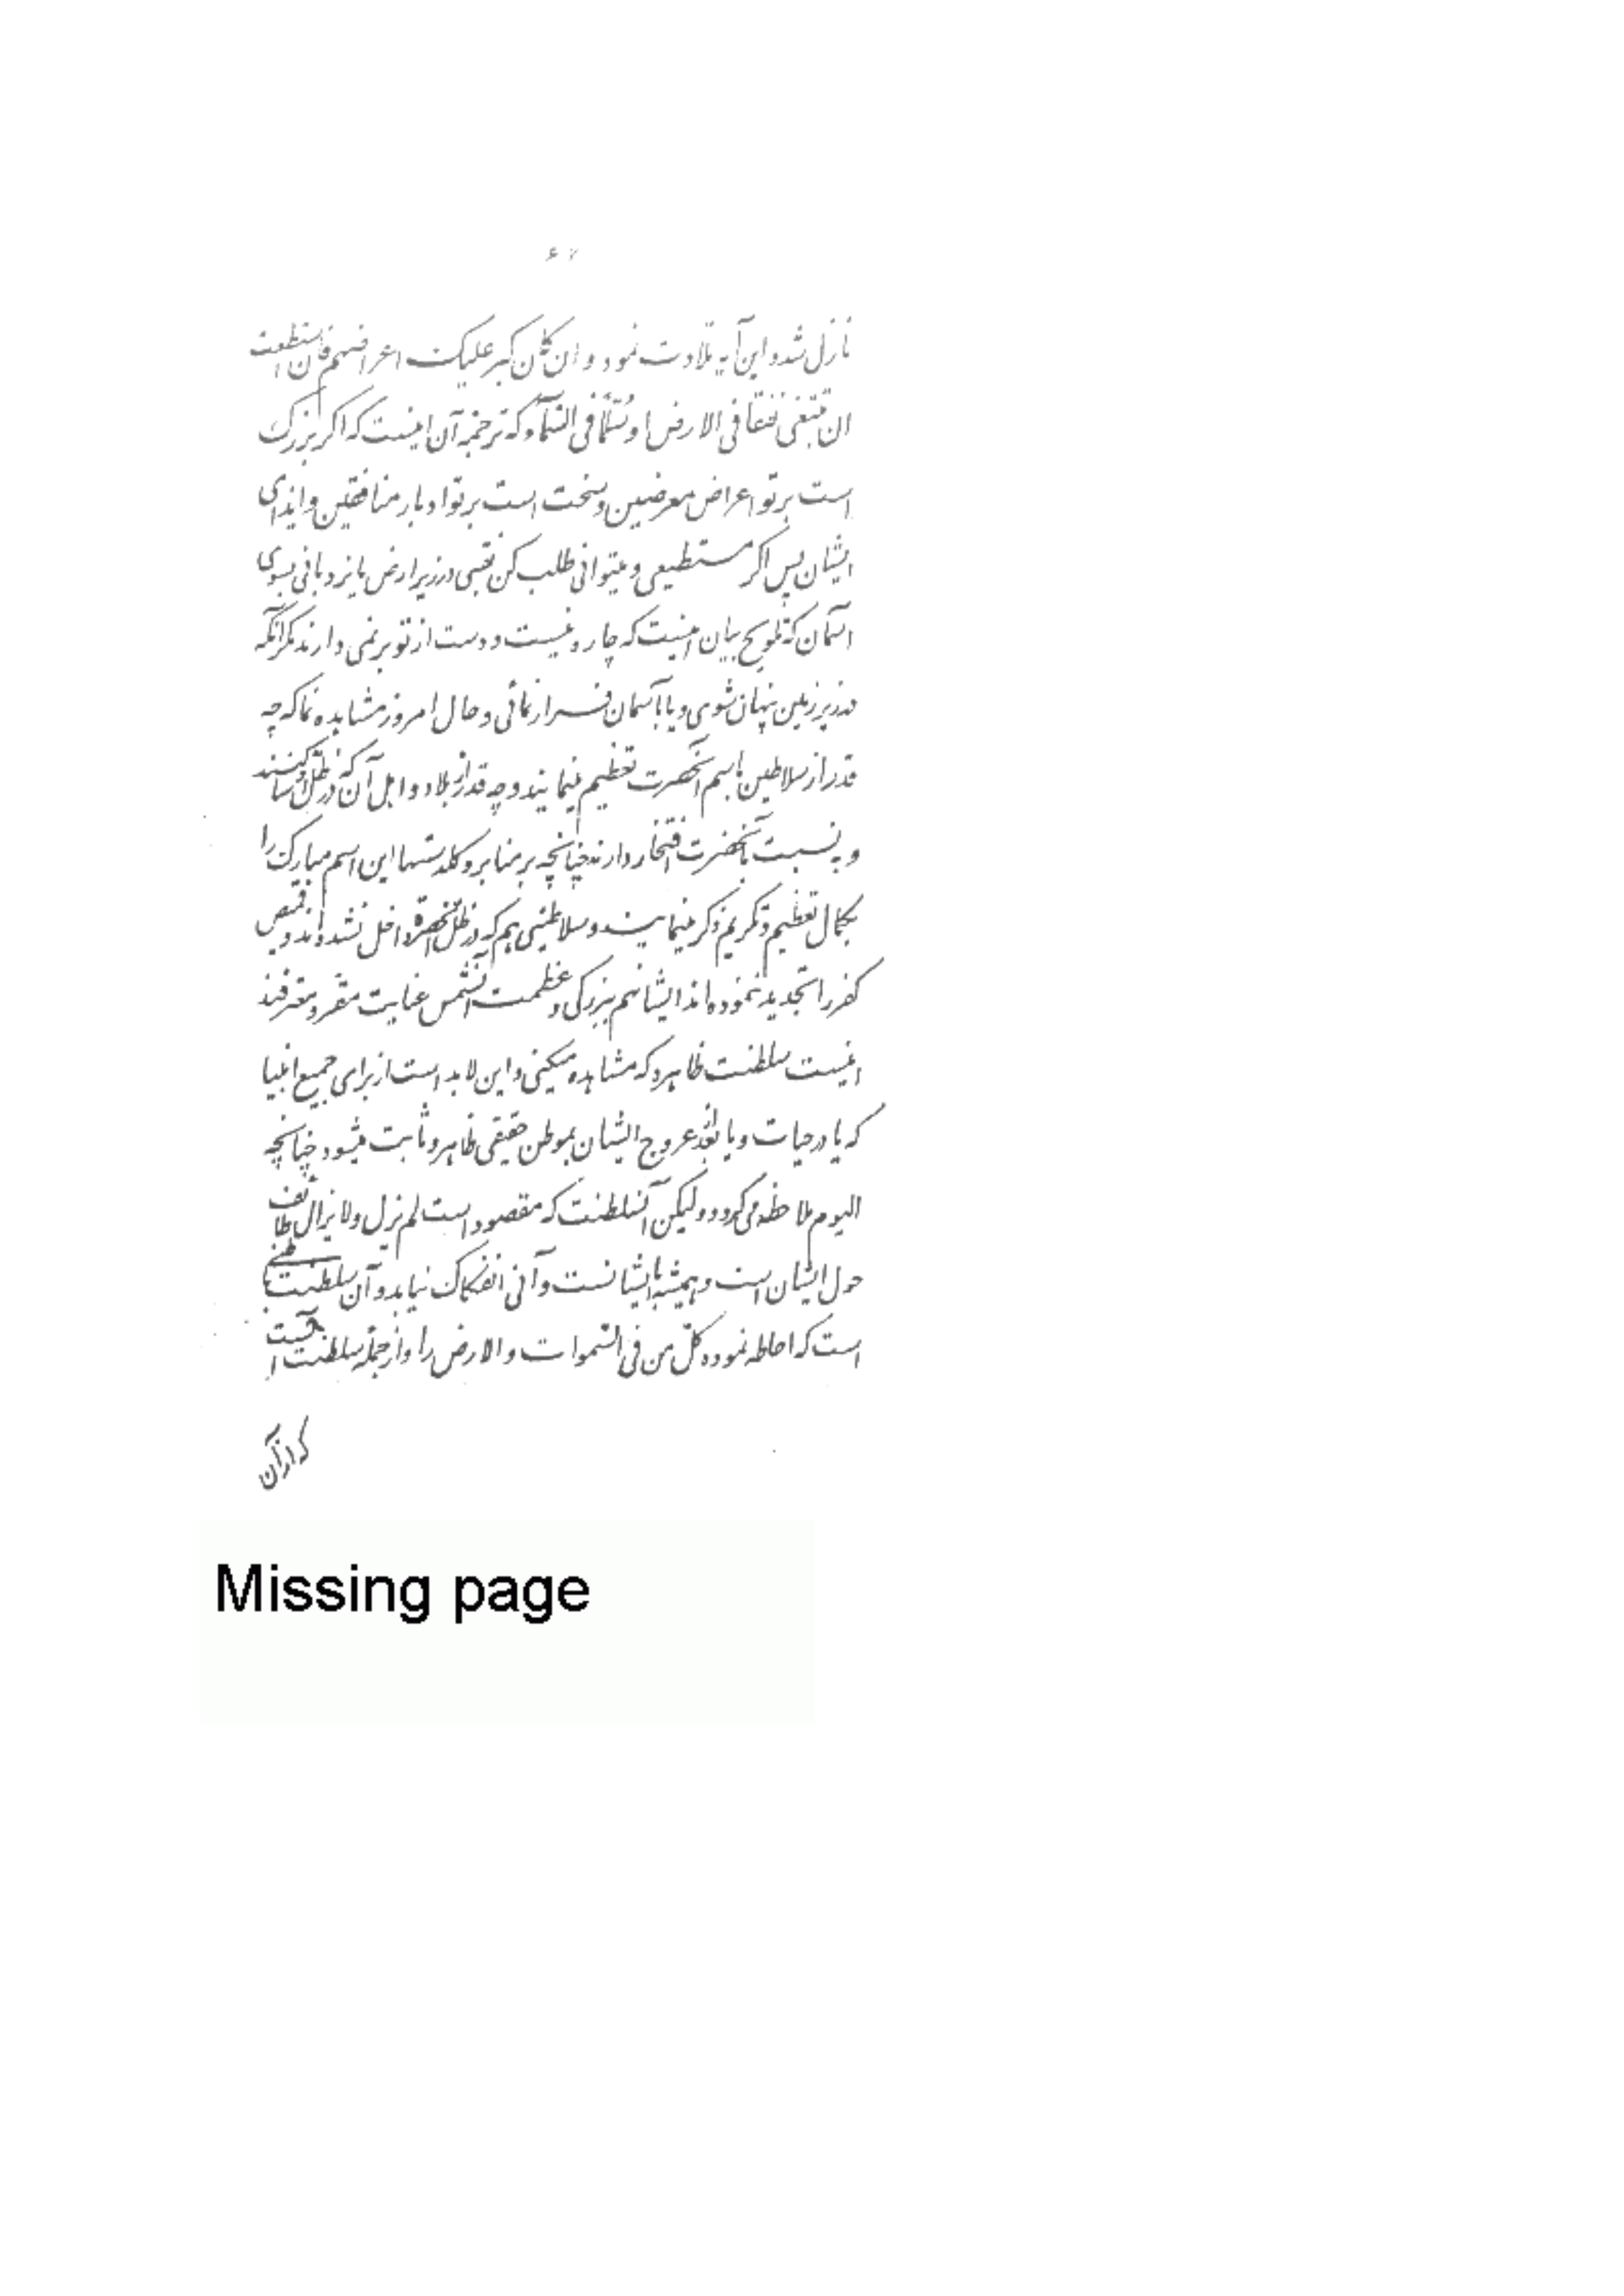 نازل شد و این آیه تلاوت نمود و ان کان کبر علیک اعراضهم فان استطعت
ان تبتغی نفقا فی الارض او سلّما فی السّمآء که ترجمه آن اینست که اگر بزرگ
است بر تو اعراض معرضین و سخت است بر تو ادبار منافقین و ایذای
ایشان پس اگر مستطیعی و میتوانی طلب کن نقبی در زیر ارض یا نردبانی بسوی
آسمان که تلویح بیان اینست که چاره نیست و دست از تو بر نمی دارند مگر آنکه
در زیر زمین پنهان شوی و یا بآسمان فرار نمائی و حال امروز مشاهده نما که چه
قدر از سلاطین باسم آنحضرت تعظیم مینمایند و چه قدر از بلاد و اهل آن که در ظلّ او ساکنند
و بنسبت بآنحضرت افتخار دارند چنانچه بر منابر و گلدستها این اسم مبارک را
بکمال تعظیم و تکریم ذکر مینمایند و سلاطینی هم که در ظلّ آنحضرت داخل نشده‌اند و قمیص
کفر را تجدید ننموده‌اند ایشانهم ببزرگی و عظمت آنشمس عنایت مقر و معترفند
اینست سلطنت ظاهره که مشاهده میکنی و این لابد است از برای جمیع انبیا
که یا در حیات و یا بعد از عروج ایشان بموطن حقیقی ظاهر و ثابت میشود چنانچه
الیوم ملاحظه می گردد ولیکن آنسلطنت که مقصود است لم یزل و لا یزال طائف
حول ایشان است و همیشه با ایشانست و آنی انفکاک نیابد و آن سلطنت باطنیه
است که احاطه نموده کلّ من فی السّموات و الارض را و از جمله سلطنت آنست
که از آن
Missing page